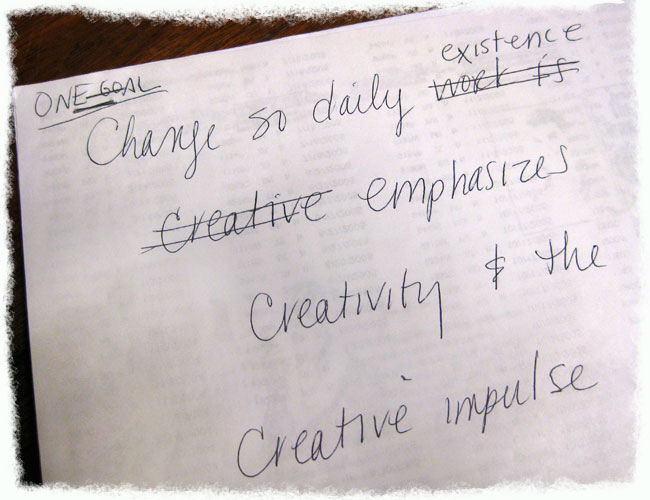 ONE GOAL
existence
Change so daily work is
Creative emphasizes
Creativity & the
Creative impulse